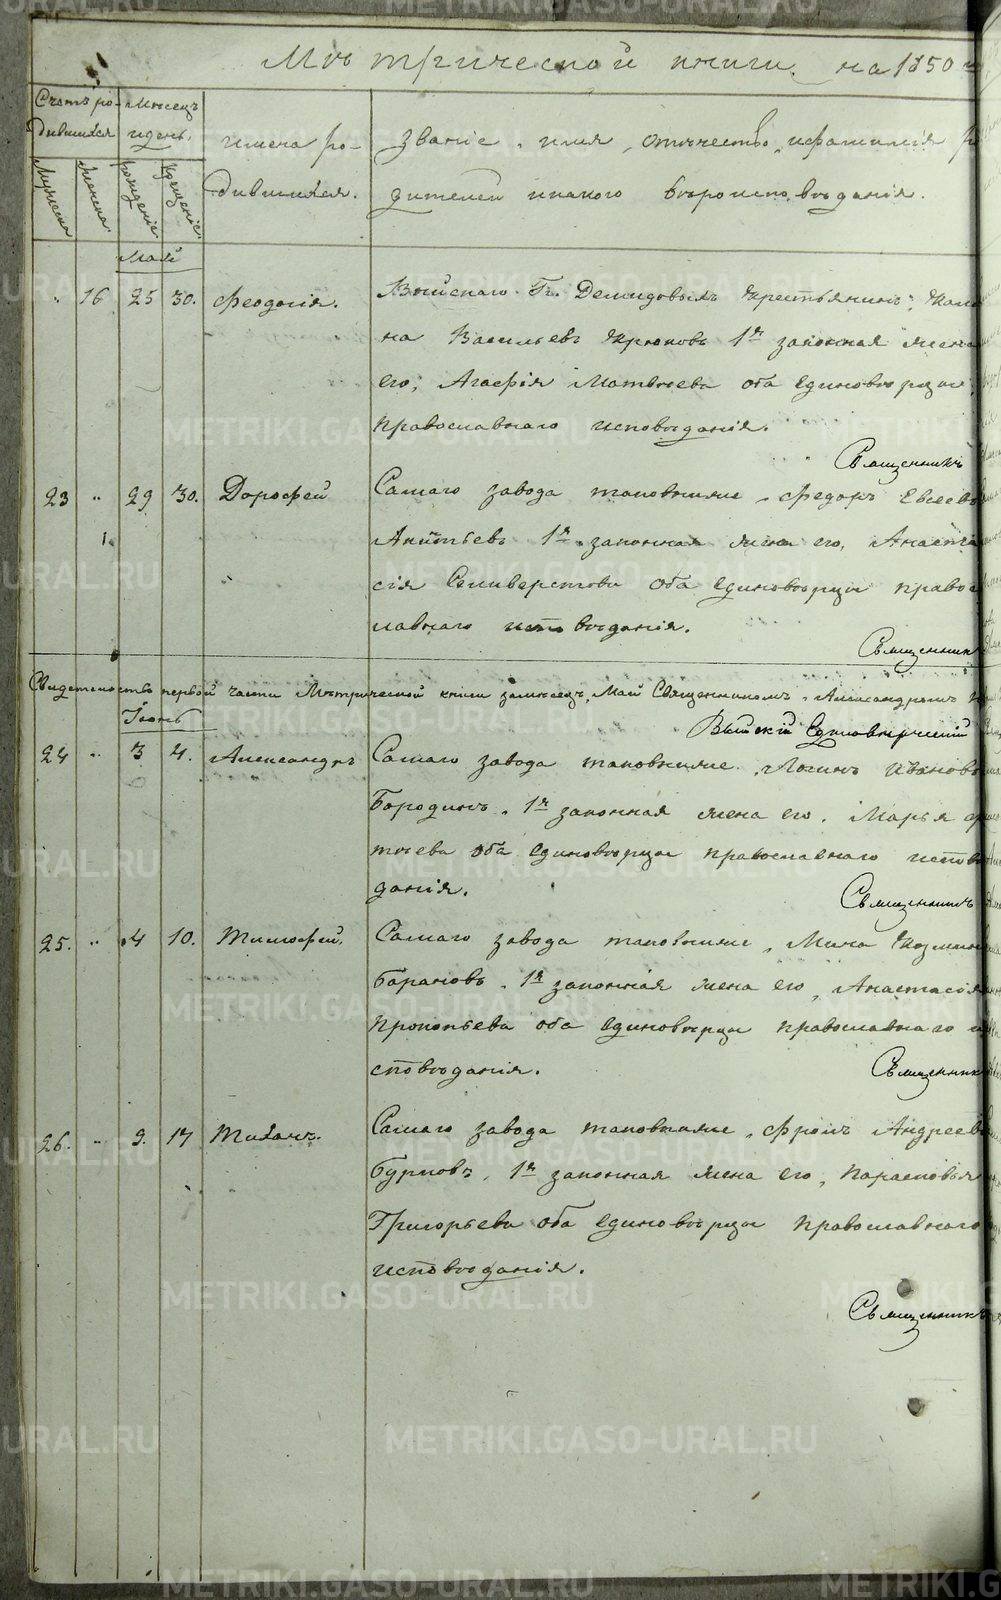 Метрической книги на 1850
Счетъ ро- Месецъ
дившихся идень. имена ро- званіе, имя, отечество, ифамилія ро
Мужеска Женска рожденіе Крещеніе дившихся. дителей икакого вѣроисповѣданія.
Май
" 16 25 30. Феодосія. Выйскаго Гг. Демидовыхъ крестьянинъ,
на Васильевъ Крюковъ 1й законная жена
его, Агафія Матвѣева оба Единовѣрцы
православнаго исповѣданія.
Священникъ
23 " 29 30. Дорофей Самаго завода таковыяже, Федоръ Евсеевъ
Антипьевъ 1й законная жена его, Анаста
сія Селиверстова оба Единовѣрцы правос
лавнаго исповѣданія.
Священник
Свидетельствъ первой части Метрической книги замесецъ Май Священникомъ Александромъ
Июнь Выйскій Единовѣрческій
24 " 3 4. Александръ Самаго завода таковыяже, Логинъ Ивановъ
Бородинъ, 1й законная жена его, Марья
тѣева оба Единовѣрцы православнаго испов
данія.
Священникъ
25. " 4 10. Тимофей. Самаго завода таковыяже, Мина Козмин
Барановъ, 1й законная жена его, Анастасія
Прокопьева оба Единовѣрцы православнаго и
сповѣданія. Священник
26. " 9. 17 Тихонъ. Самаго завода таковыяже, Фролъ Андреевъ
Бурковъ, 1й законная жена его, Парасковья
Григорьева оба Единовѣрцы православнаго
исповѣданія.
Священникъ
METRIKI.GASO-URAL.RU